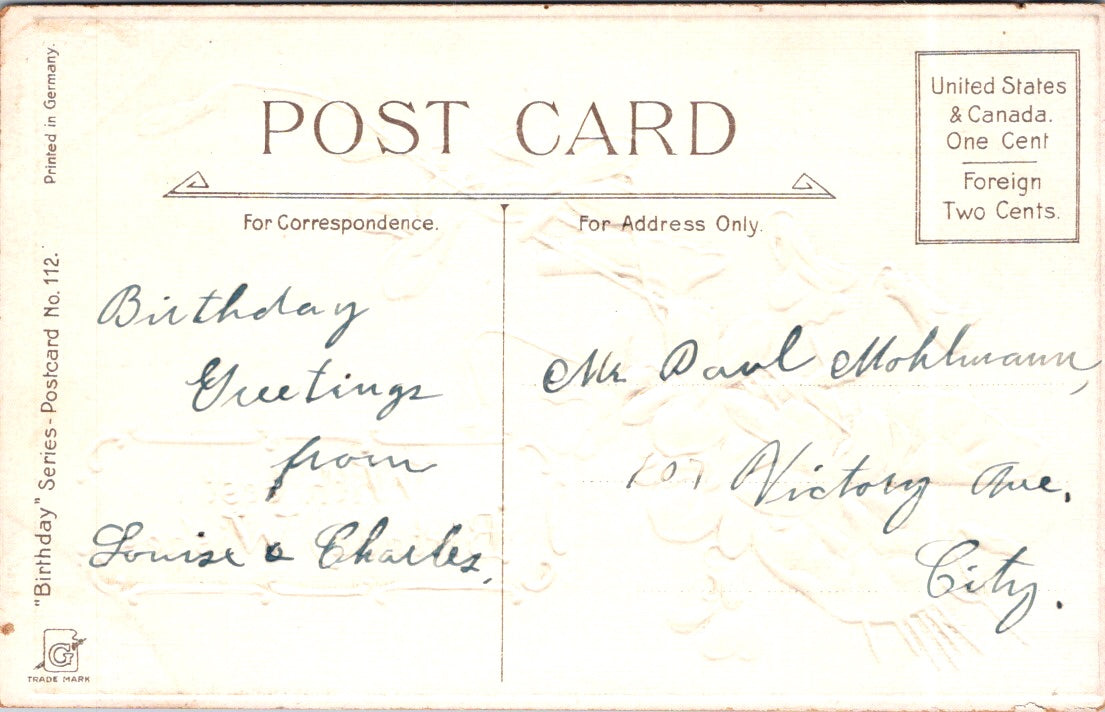 Printed in Germany.
"Birthday" Series - Postcard No. 112.
POST CARD
United States
& Canada.
One Cent
Foreign
Two Cents.
For Correspondence.
For Address Only.
Birthday
Greetings
from
Louise & Charles,
Mr. Paul Mohlmann,
107 Victory Ave.
City.
G
TRADE MARK